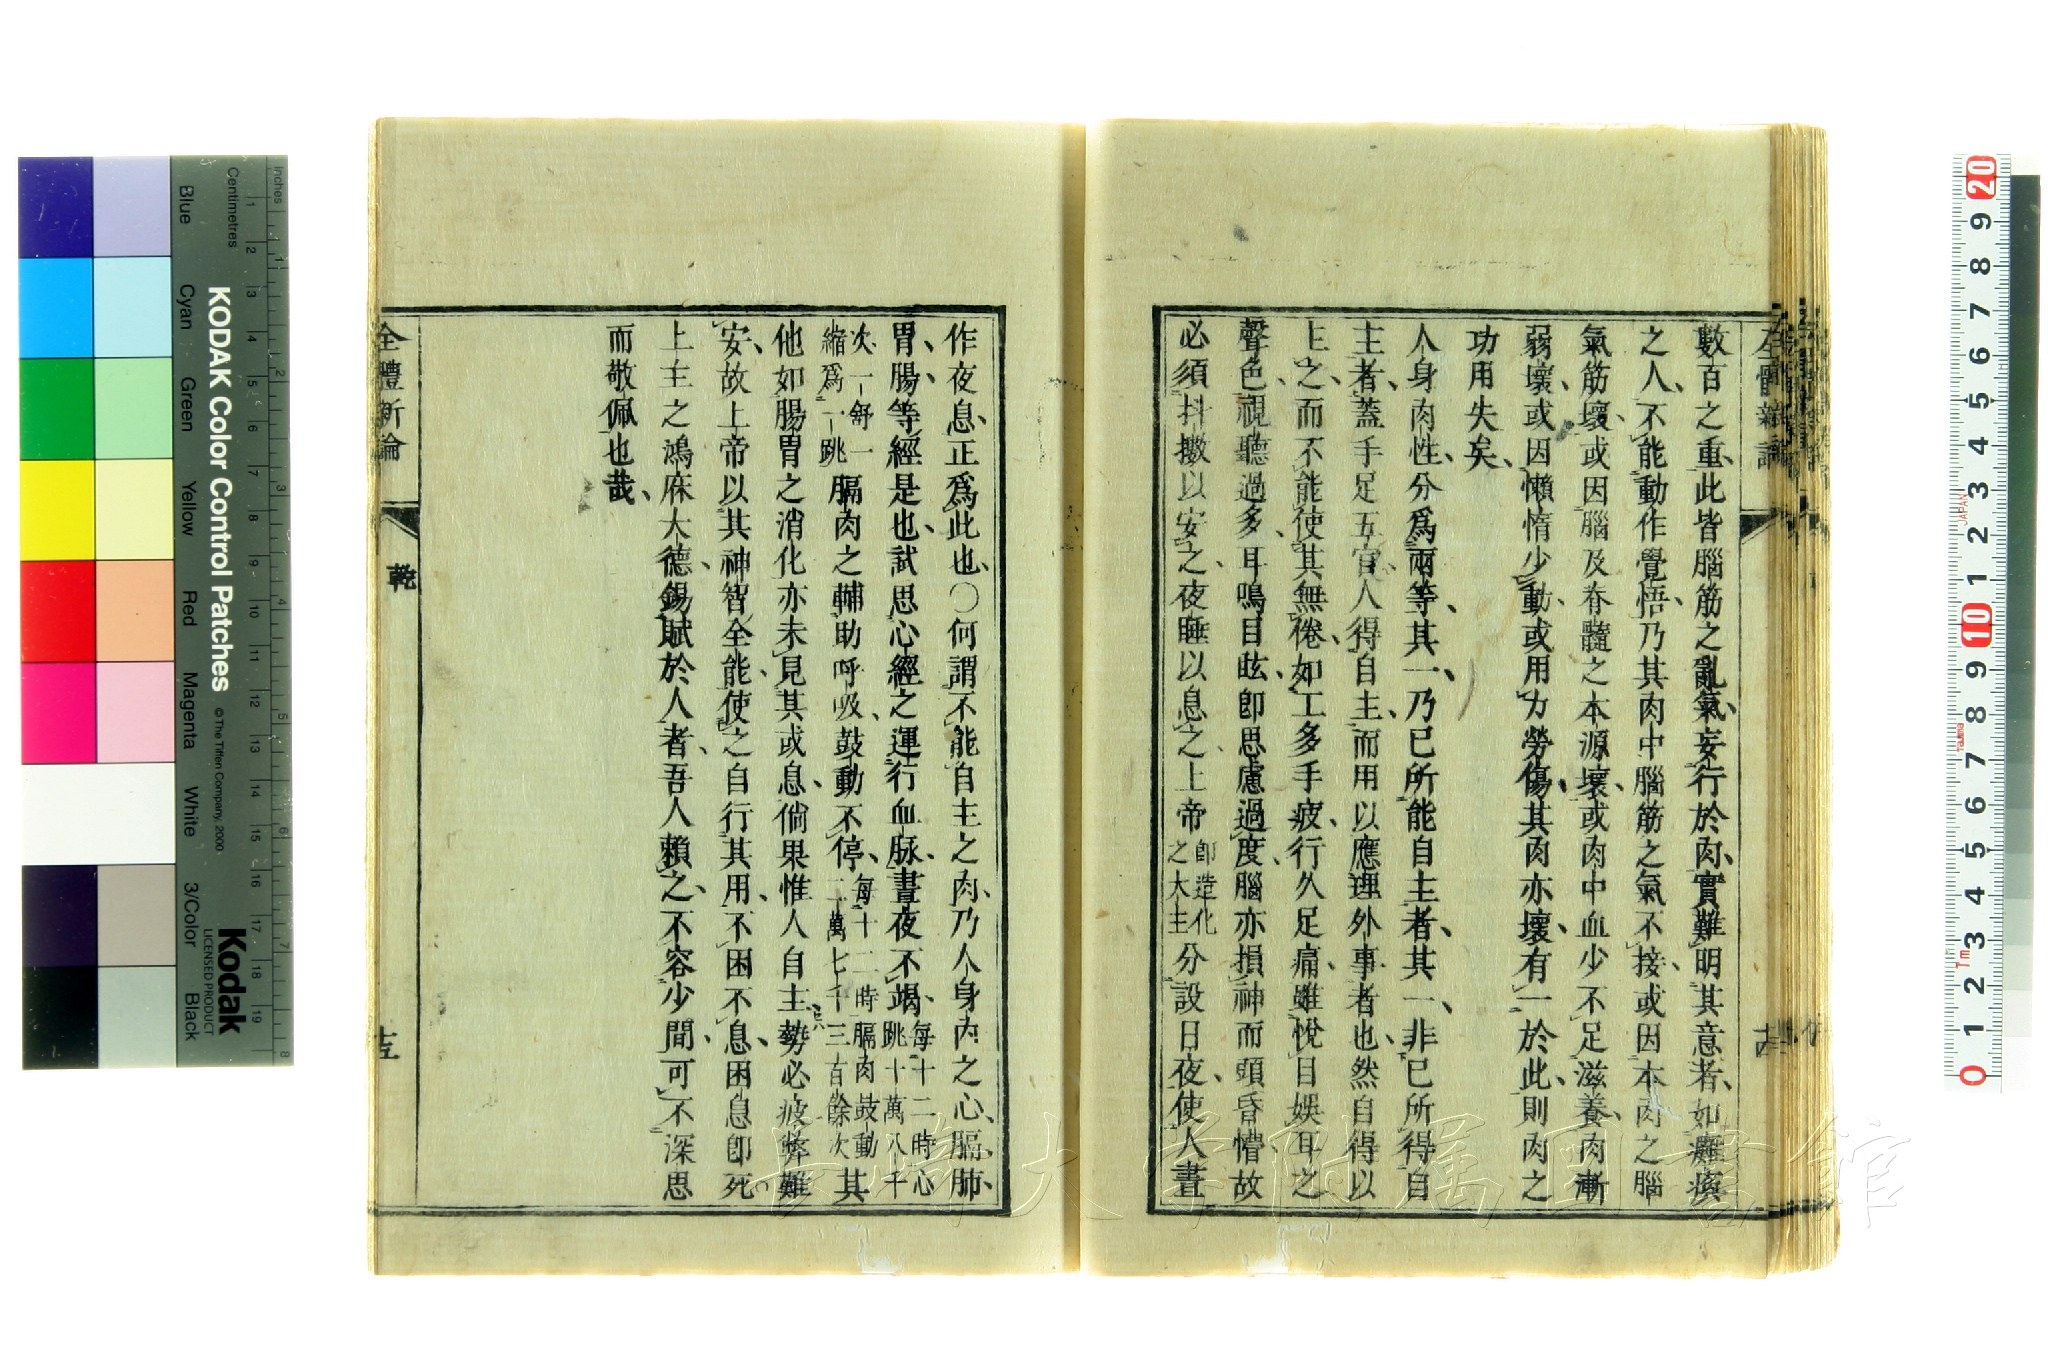 數百之重、此皆腦筋之亂氣、妄行於肉、實難明其意者、如癱瘓
之人、不能動作覺悟、乃其肉中腦筋之氣不接、或因本肉之腦
氣筋壞、或因腦及脊髓之本源壞、或肉中血少不足滋養、肉漸
弱壞、或因懶惰少動、或用力勞傷、其肉亦壞、有一於此、則肉之
功用失矣、
人身肉性、分爲兩等、其一、乃已所能自主者、其一、非已所得自
主者、蓋手足五官、人得自主、而用以應理外事者也、然自得以
主之、而不能使其無倦、如工多手疲、行久足痛、雖悅目娛耳之
聲色、視聽過多、耳鳴目眩、卽思慮過度、腦亦損神而頭昏懵、故
必須抖擻以安之、夜睡以息之、上帝
卽造化
之大主
分設日夜、使人晝
作夜息、正爲此也、〇何謂不能自主之肉、乃人身內之心、膈、肺、
胃、腸等經是也、試思心經之運行血脉、晝夜不竭、
每十二時心
跳十萬八千
次一舒一
縮爲一跳
膈肉之輔助呼吸、鼓動不停、
每十二時膈肉鼓動
二萬七千三百餘次
其
他如腸胃之消化、亦未見其或息、倘果惟人自主、勢必疲弊難
安、故上帝以其神智全能、使之自行其用、不困不息、困息卽死
上主之鴻庥大德、錫賦於人者、吾人賴之、不容少間、可不深思
而敬佩也哉、
全體新論
乾